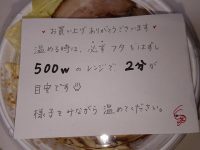 お買い上げありがとうございます
温める時は、必ずフタをはずし
500wのレンジで2分が
目安です
様子をみながら温めてください。